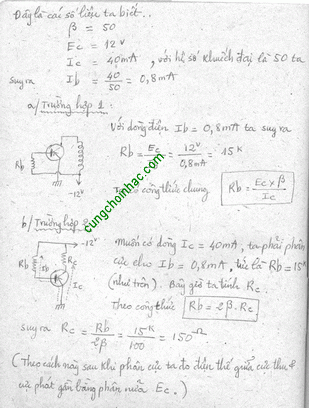 Đây là các số liệu ta biết..
β = 50
Ec = 12V
Ic = 40mA, với hệ số khuếch đại là 50 ta
suy ra Ib = 40/50 = 0,8mA
a/ Trường hợp 1:
Với dòng điện Ib = 0,8mA ta suy ra
Rb = Ec/Ib = 12V/0,8mA = 15K
Rb
-12V
công thức chung Rb = Ec×β/Ic
cungchoinhac.com
b/ Trường hợp 2
-12V
Rb
Rc
Ib
Ic
Muốn có dòng Ic = 40mA, ta phải phân
cực cho Ib = 0,8mA, tức là Rb = 15K
(như trên). Bây giờ ta tính Rc.
Theo công thức Rb = 2β.Rc
suy ra Rc = Rb/2β = 15K/100 = 150Ω
(Theo cách này sau khi phân cực ta đo điện thế giữa cực thu &
cực phát gần bằng phân nửa Ec.)